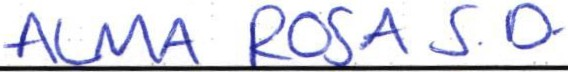 ALMA ROSA S.D.